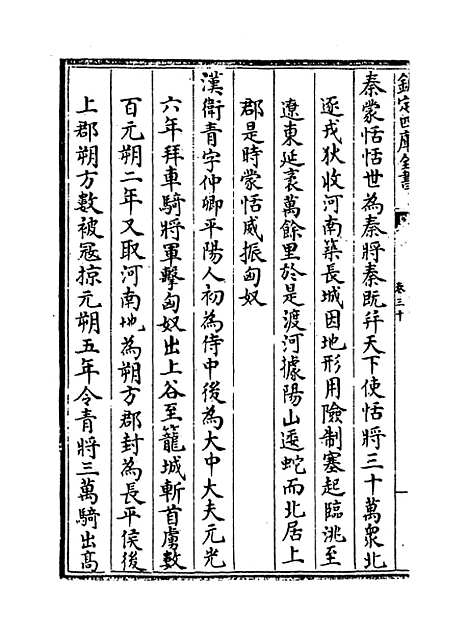 欽定四庫全書
卷三十
秦蒙恬恬世為秦將秦既并天下使恬將三十萬衆北
逐戎狄收河南築長城因地形用險制塞起臨洮至
遼東延袤萬餘里於是渡河據陽山逶蛇而北居上
郡是時蒙恬威振匈奴
漢衛青字仲卿平陽人初為侍中後為大中大夫元光
六年拜車騎將軍擊匈奴出上谷至籠城斬首虜數
百元朔二年又取河南地為朔方郡封為長平侯後
上郡朔方數被冦掠元朔五年令青將三萬騎出髙